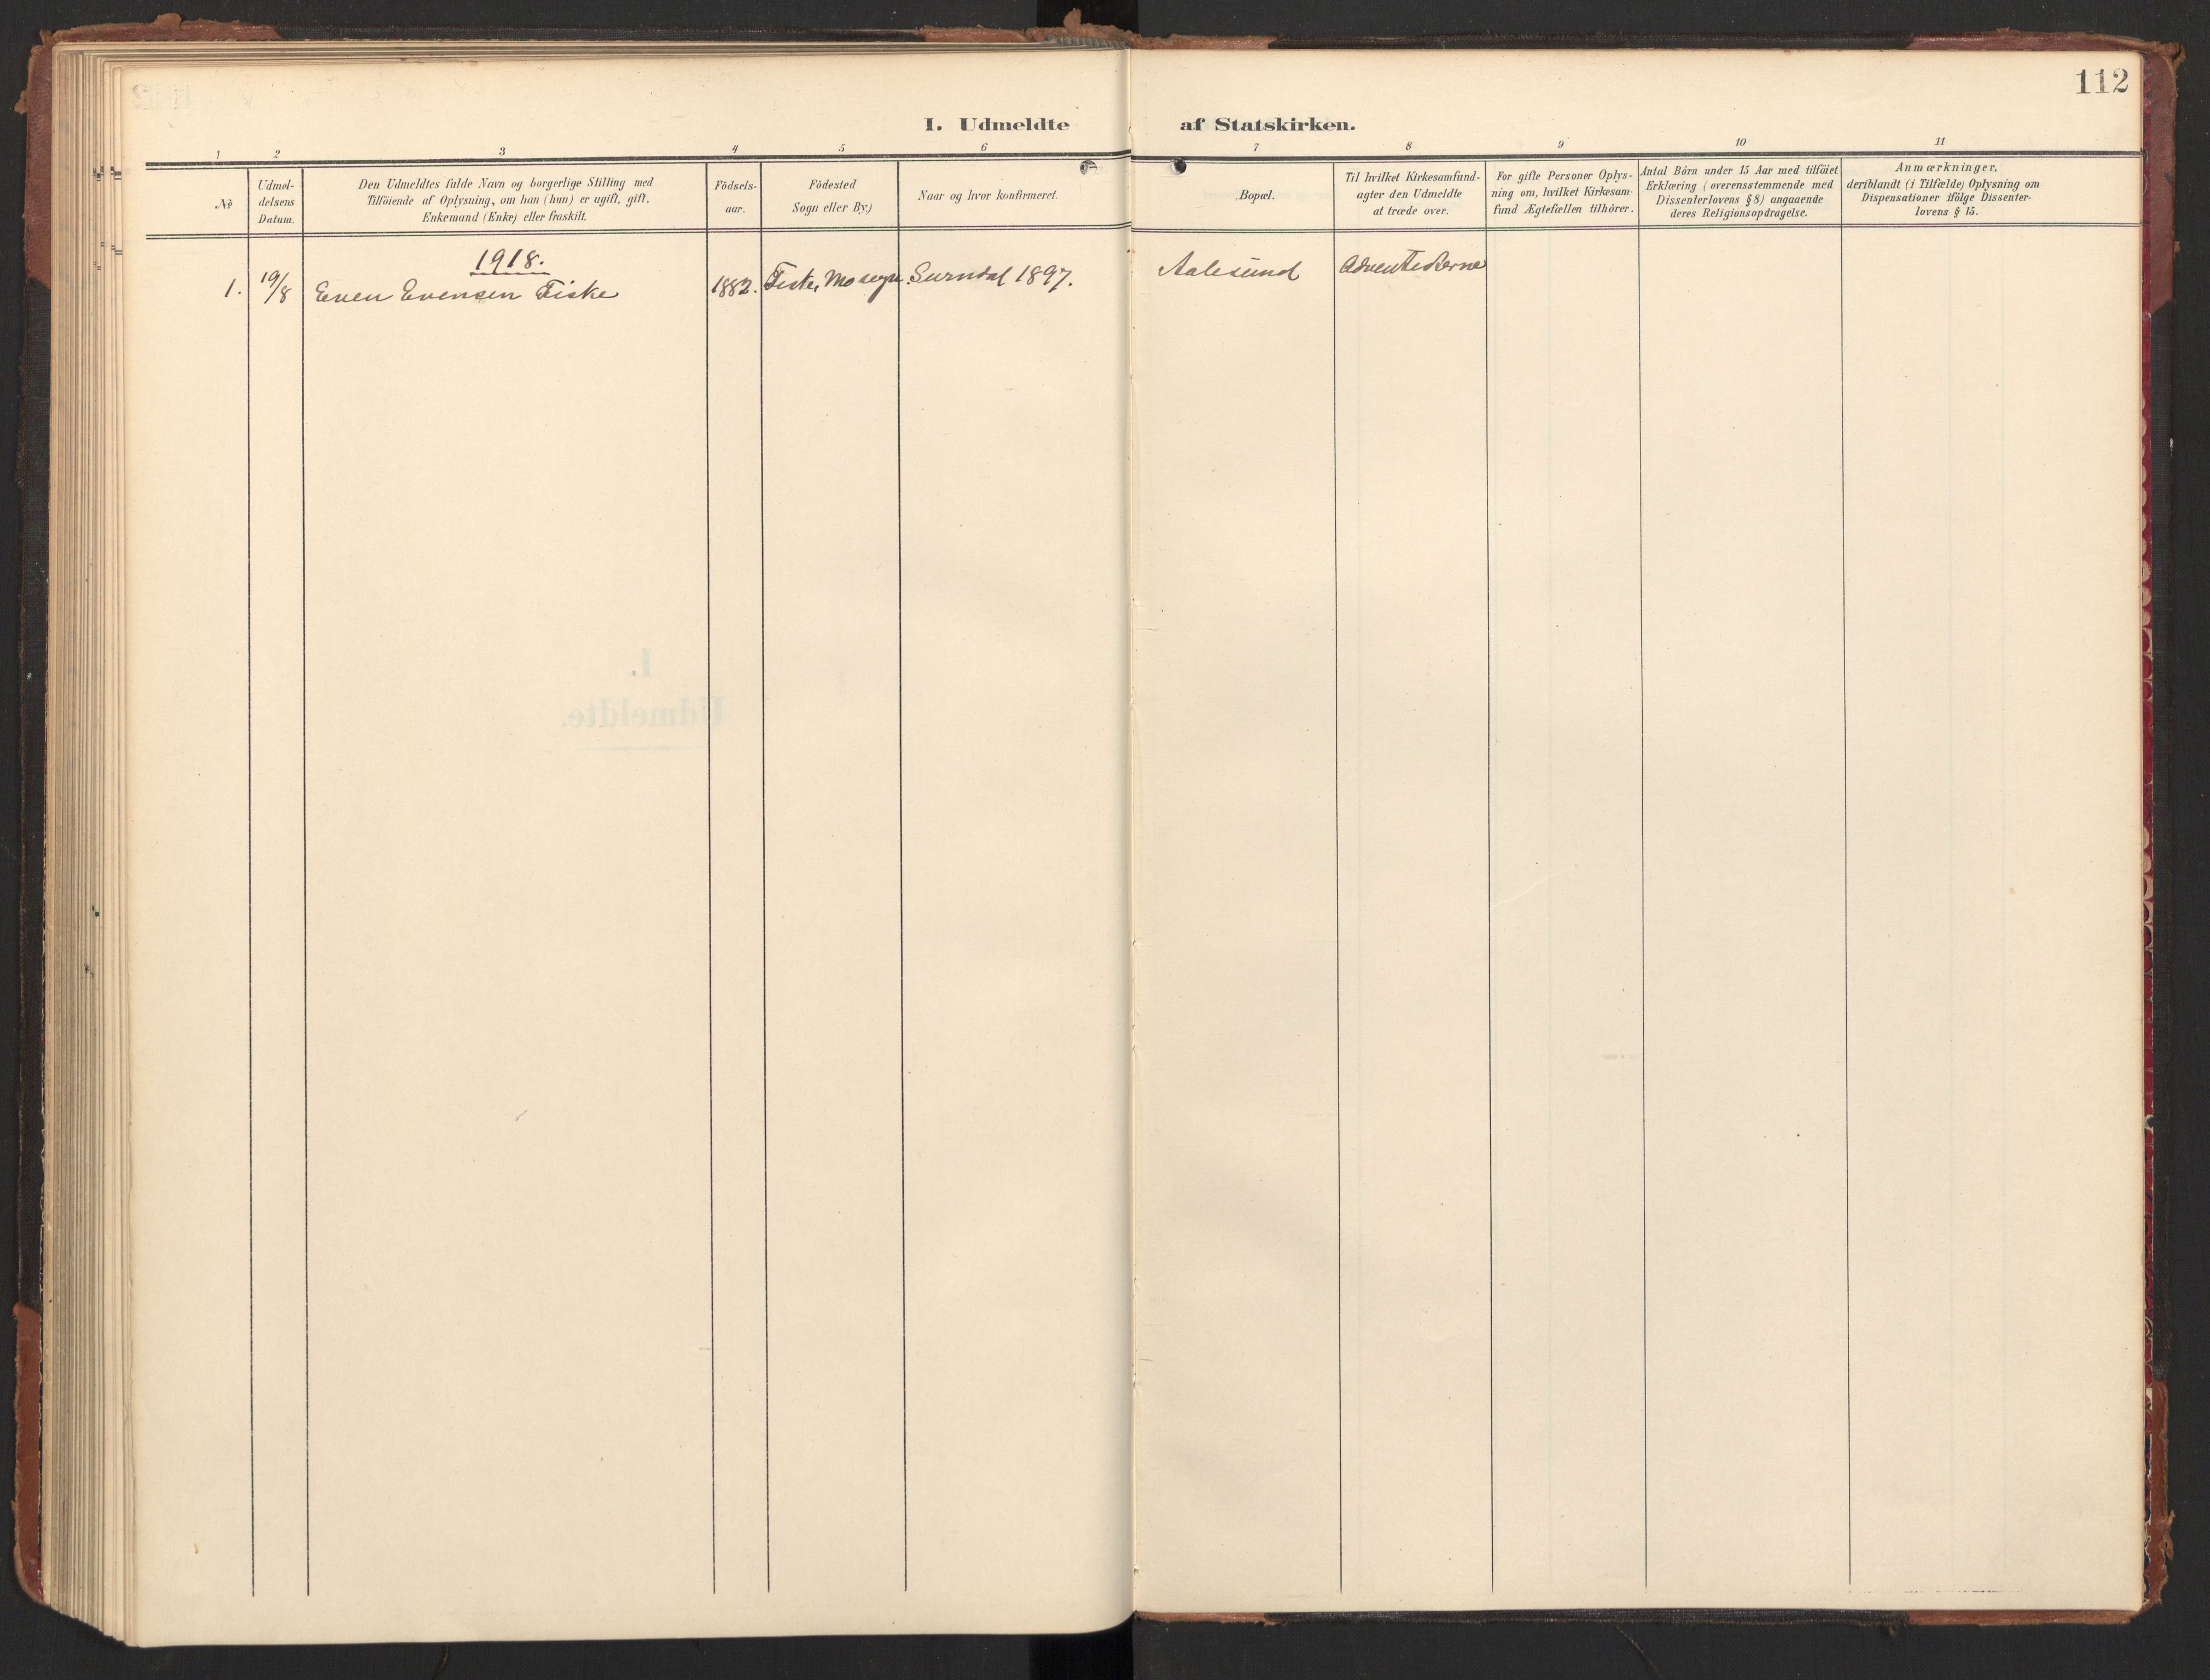 112
I. Udmeldte af Statskirken.
1 2 3 4 5 6 7 8 9 10 11
№
Udmel-
delsens
Datum.
Den Udmeldtes fulde Navn og borgerlige Stilling med
Tilföiende af Oplysning, om han (hun) er ugift, gift,
Enkemand (Enke) eller fraskilt.
Födsels-
aar.
Födested
Sogn eller By.)
Naar og hvor konfirmeret.
Bopæl.
Til hvilket Kirkesamfund-
agter den Udmeldte
at træde over.
For gifte Personer Oplys-
ning om, hvilket Kirkesam-
fund Ægtefællen tilhörer.
Antal Börn under 15 Aar med tilföiet
Erklæring (overensstemmende med
Dissenterlovens § 8) angaaende
deres Religionsopdragelse.
Anmærkninger,
deriblandt (i Tilfælde) Oplysning om
Dispensationer ifölge Dissenter-
lovens § 15.
1918.
1. 19/8 Even Evensen Fiske 1882. Fiske, Mo sogn. Surndal 1897. Aalesund Adventisterne
I.
Udmeldte.